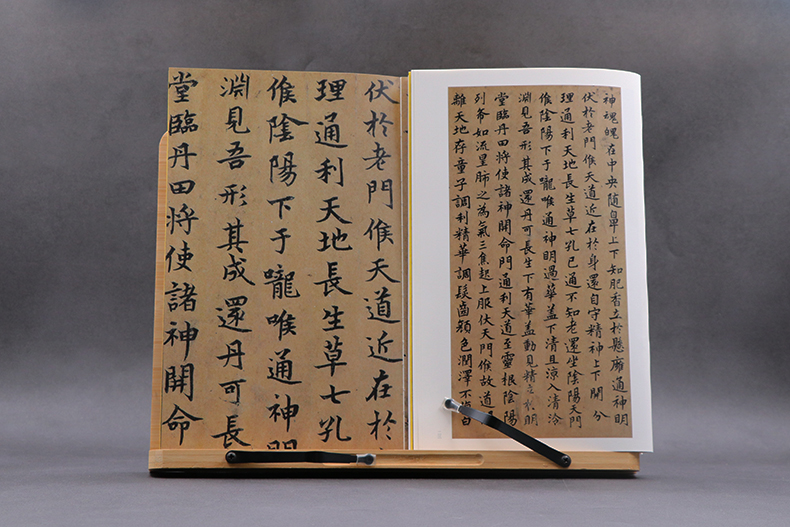 神魂魄在中央随鼻上下知肥香立於懸膺通神明
伏於老門候天道近在於身還自守精神上下開分
理通利天地長生草七孔已通不知老還坐陰陽天門
候陰陽下于嚨喉通神明過華盖下清且涼入清泠
淵見吾形其成還丹可長生下有華盖動見精明
堂臨丹田將使諸神開命門通利天道至靈根陰陽
列布如流星肺之為氣三焦起上服伏天門候故道
離天地存童子調利精華調髮齒顏色潤澤不白
伏於老門候天道近在於
理通利天地長生草七孔
候陰陽下于嚨喉通神明
淵見吾形其成還丹可長
堂臨丹田將使諸神開命